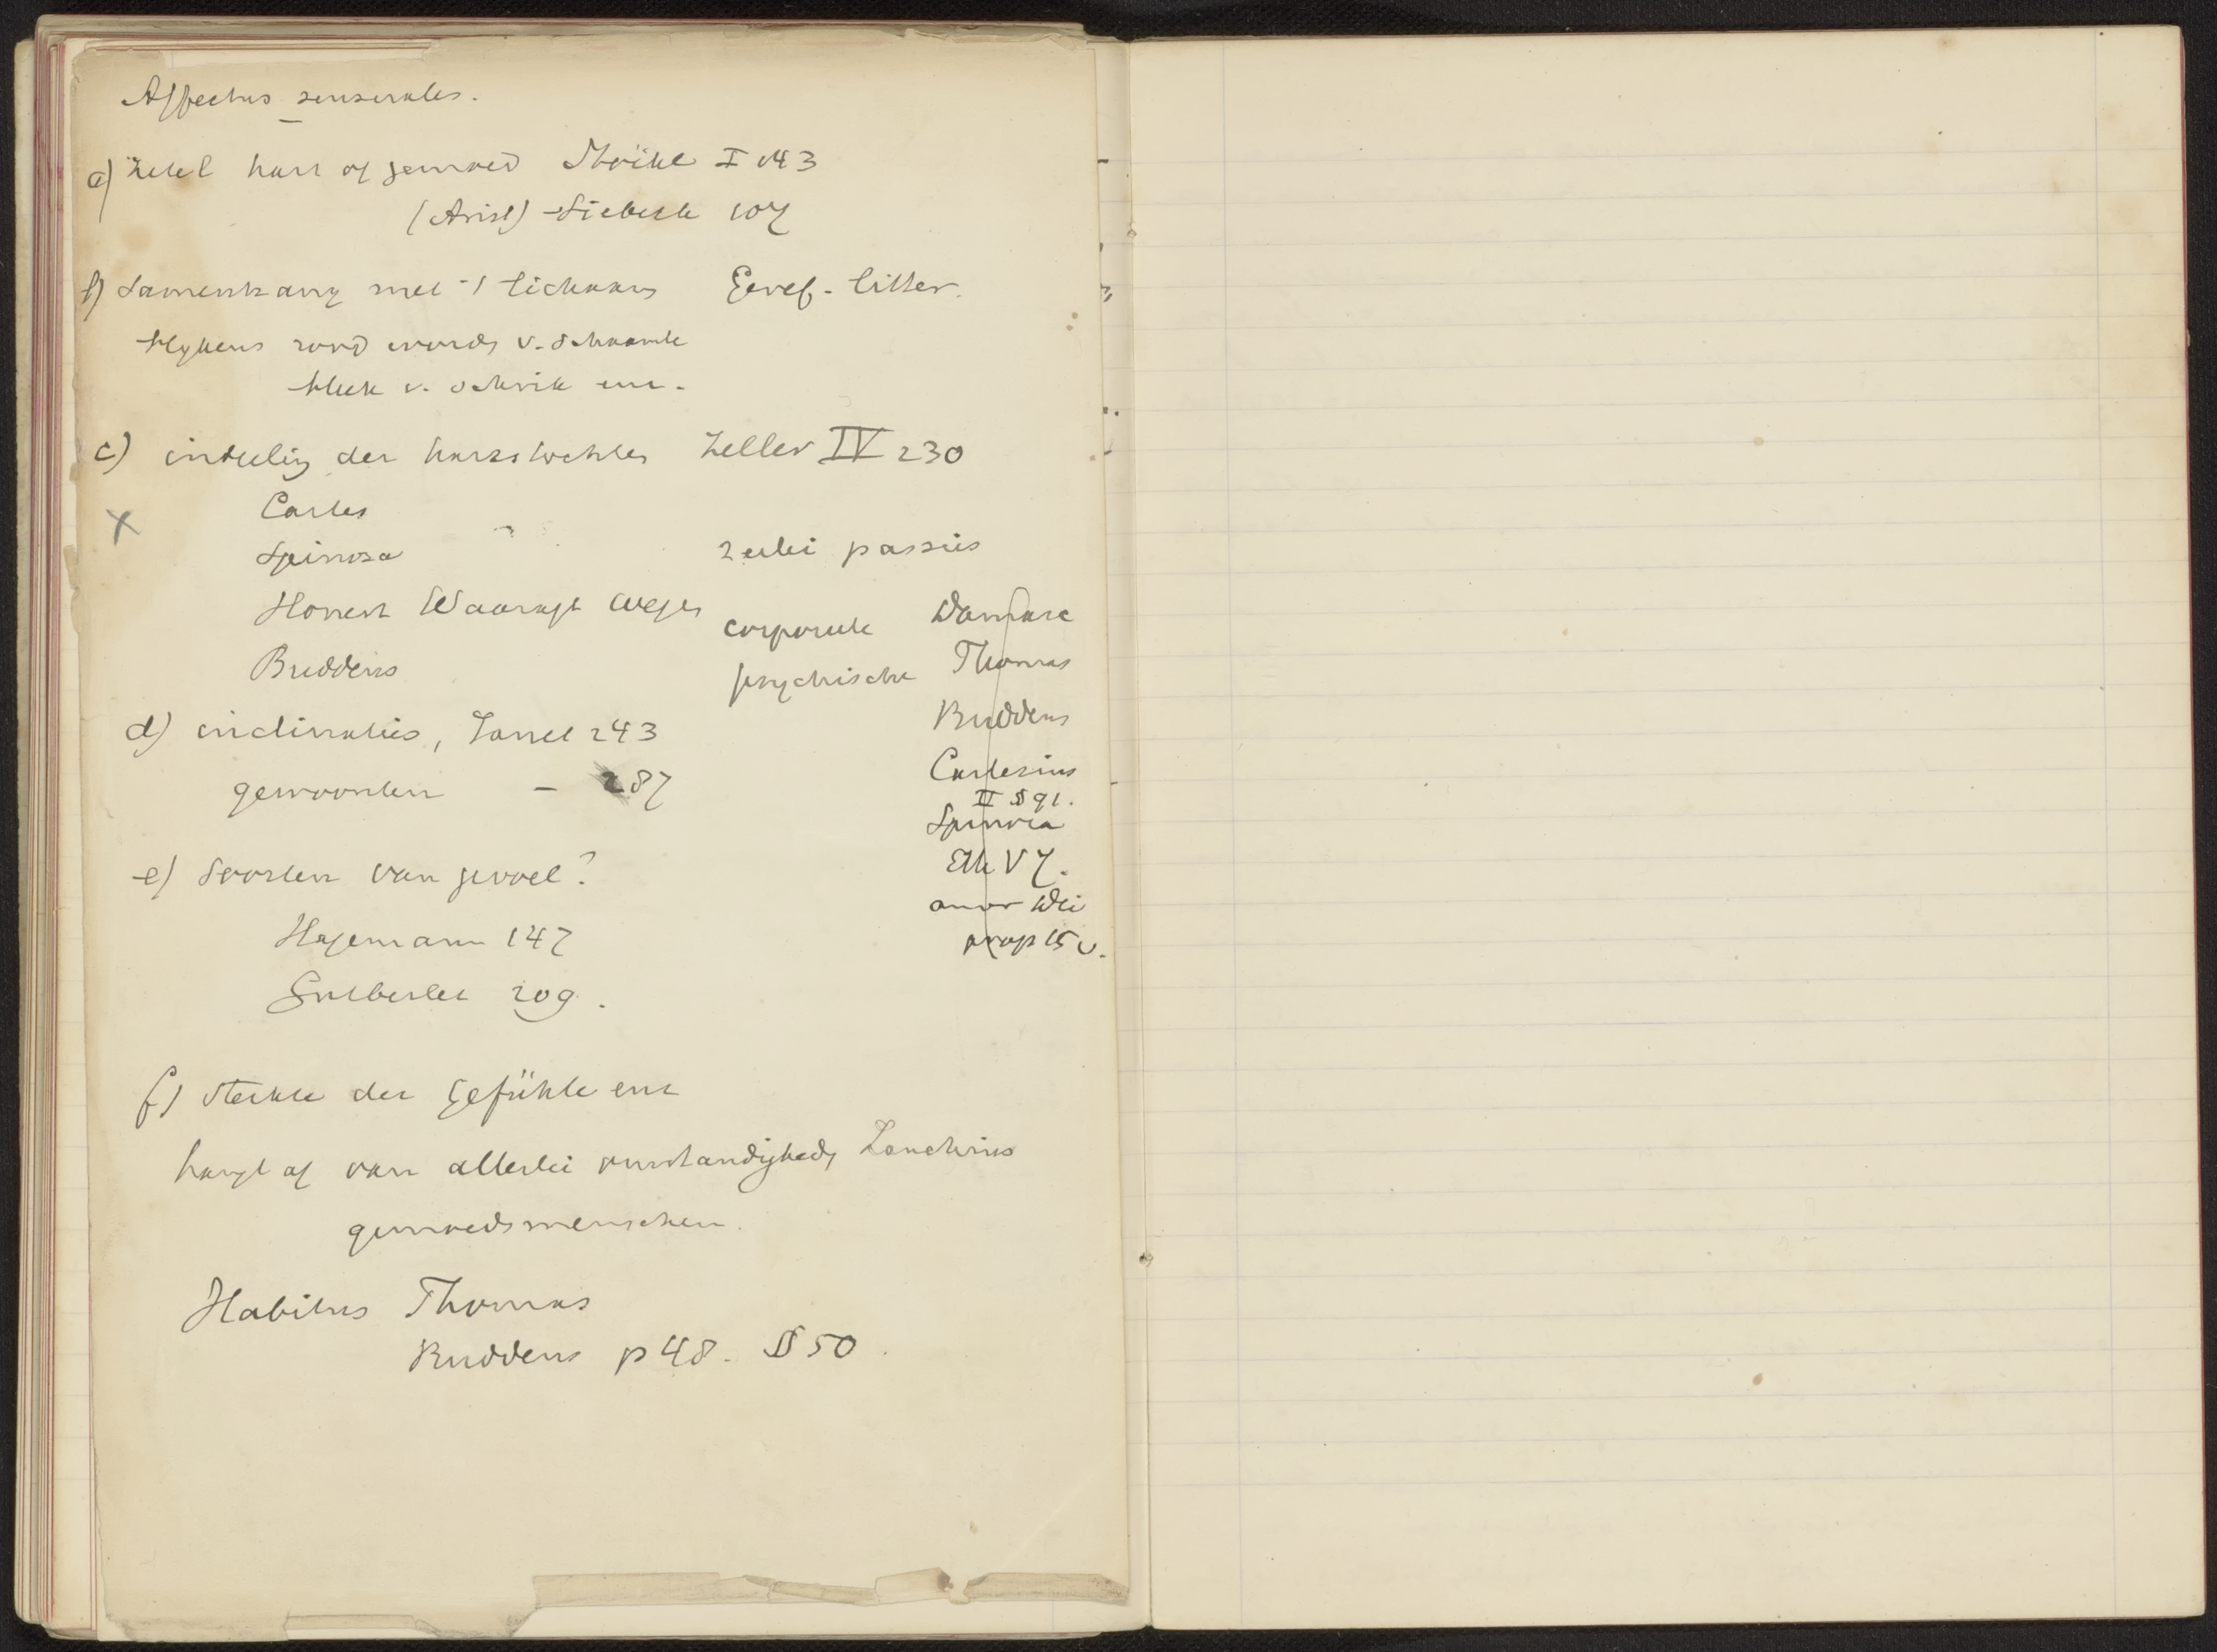 Affectus sensuales.
a) Zetel hart of gemoed Stöckl I 143
(Arist) Siebeck 107
b) Samenhang met 't lichaam Geref. litter.
blijkens rood words v. schaamte
bleek v. schrik enz.
c) indeeling der hartstochten Zeller IV 230
Cartes
Spinoza 2erlei passies
Honert Waaragt Weges
corporeele Damasc
Buddeus
psychische Thomas
Buddeus
d) inclinaties, Janet 243
gewoonten - 287
Cartesius
II § 91.
Spinoza
Eth V 7.
amor Dei
prop 15 V.
e) Soorten van gevoel?
Hagemann 147
Gutberlet 209.
f) sterkte der Gefühle enz
hangt af van allerlei omstandighed,
gemoedsmenschen.
Habitus Thomas
Buddeus p 48. § 50.